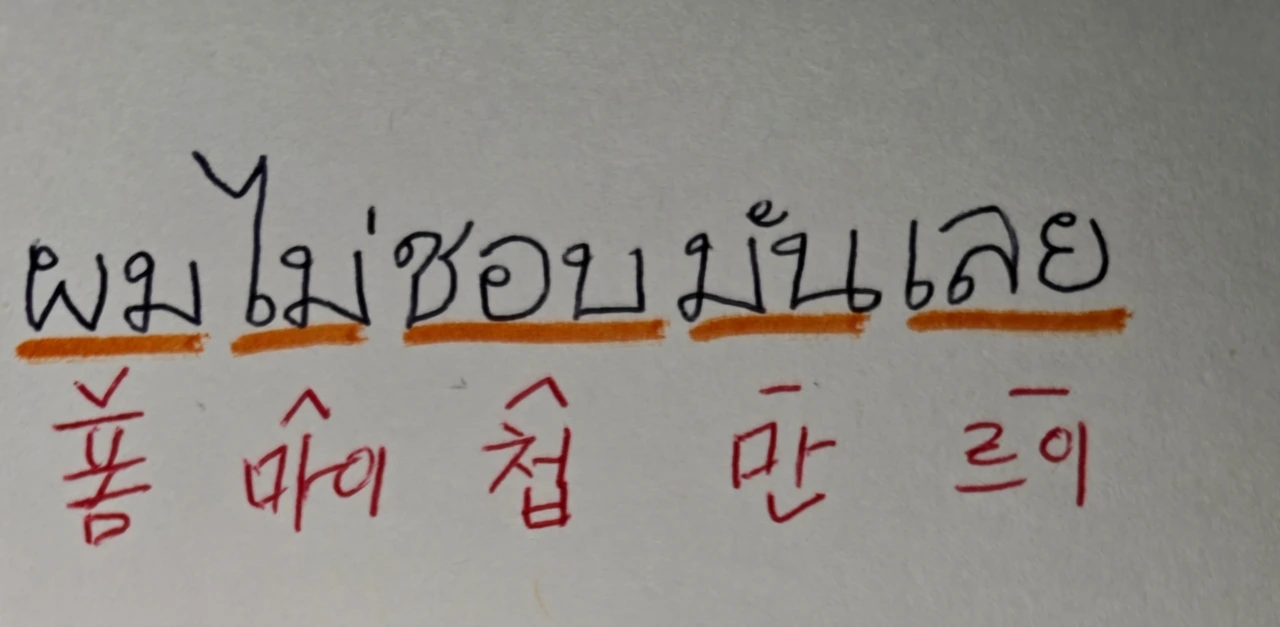 ผม ไม่ ชอบ มัน เลย
폼 마이 첩 만 르이